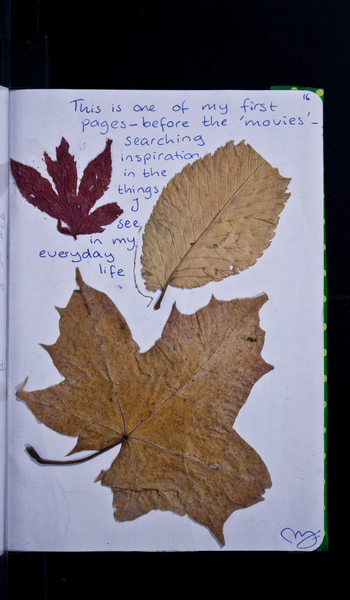 16
This is one of my first
pages - before the 'movies' -
searching
inspiration
in the
things
I
see
in my
everyday
life